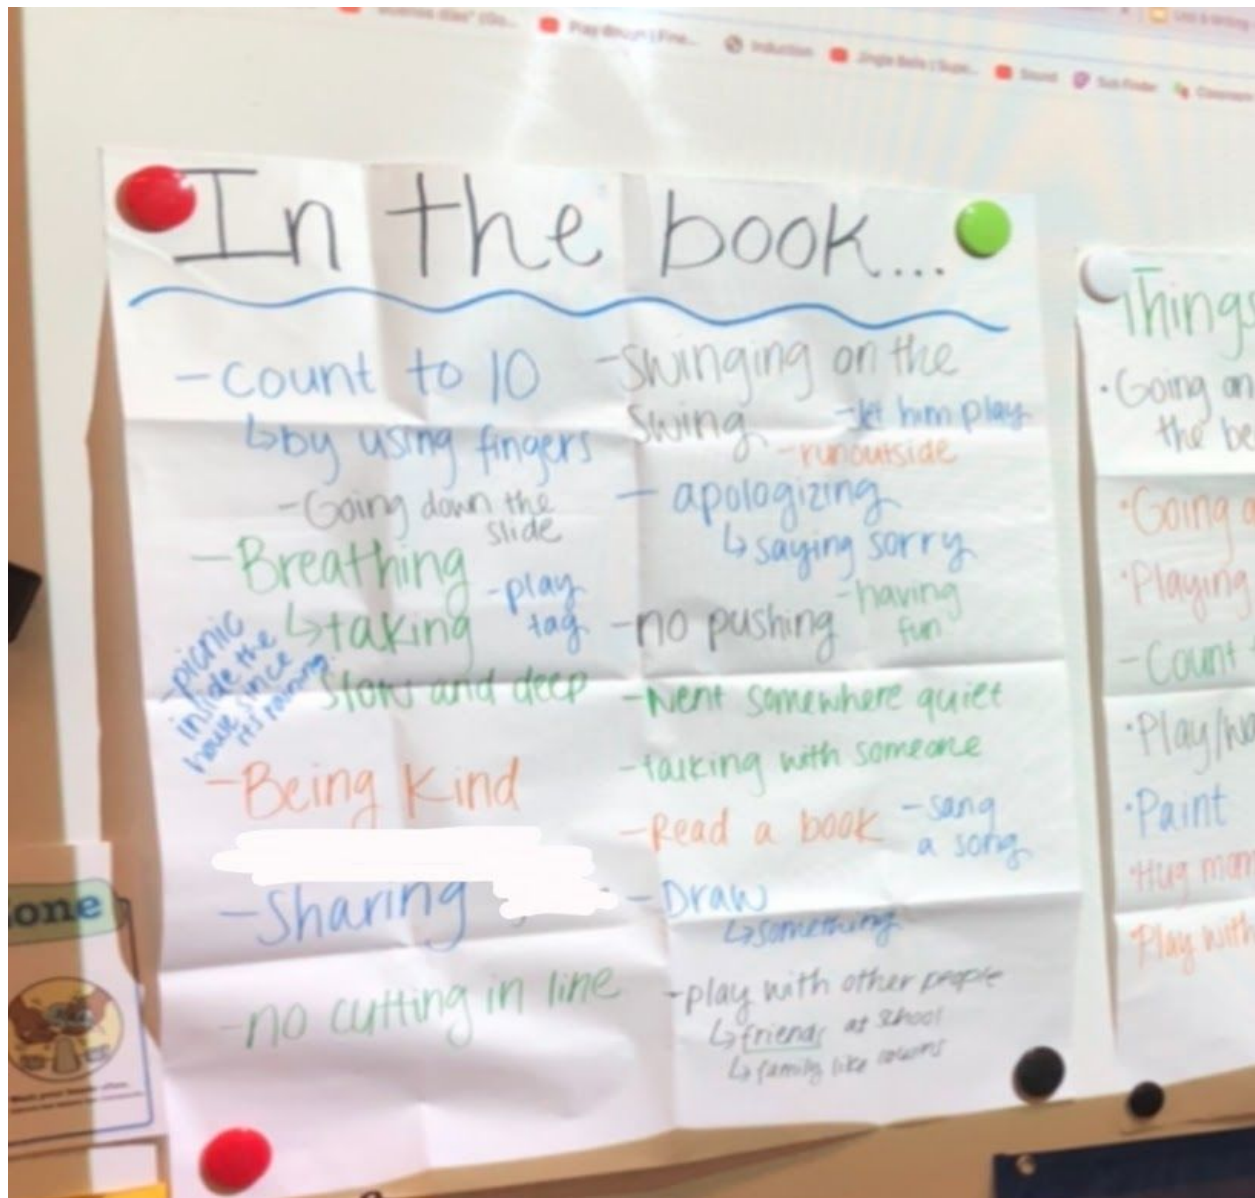 Play dough | Fine...
Induction
Jingle Bells | Supe...
Sound
Sub Finder
Classroom
In the book...
- count to 10
↳ by using fingers
- Going down the
slide
- Breathing
↳ taking
slow and deep
- play
tag
- picnic
inside the
house since
its raining
- Being kind
- Sharing
- no cutting in line
- Swinging on the
swing
- let him play
- run outside
- apologizing
↳ saying sorry
- no pushing
- having
fun
- Went somewhere quiet
- talking with someone
- Read a book
- sang
a song
- Draw
↳ something
- play with other people
↳ friends at school
↳ family like cousins
Things
• Going on
the be
• Going
• Playing
- Count
• Play/
• Paint
• Hug mom
• Play with
one